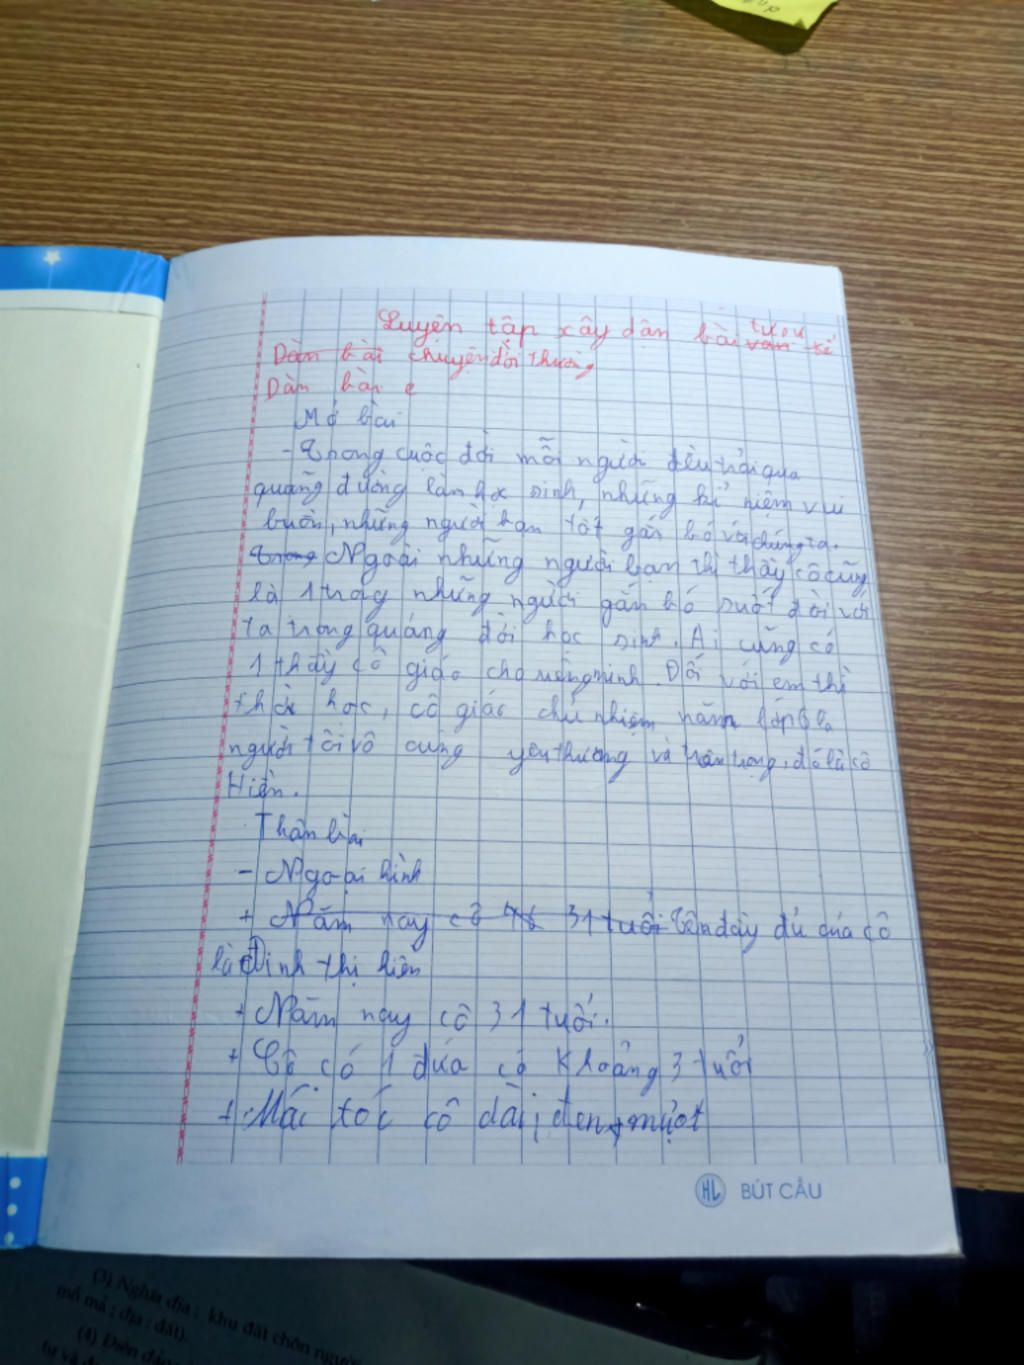 Luyện tập xây dân bài tự sự
Dàn bài chuyện đời thường kể
Dàn bài
Mở bài
- Trong cuộc đời mỗi người đều trải qua
quãng đường làm học sinh, những kỉ niệm vui
buồn, những người bạn tốt gắn bó với chúng ta.
Trong Ngoài những người bạn thì thầy cô cũng
là 1 trong những người gắn bó suốt đời với
ta trong quáng đời học sinh. Ai cũng có
1 thầy cô giáo cho riêng mình. Đối với em thì
thời học, cô giáo chủ nhiệm năm lớp 6 là
người tôi vô cùng yêu thương và trân trọng, đó là cô
Hiền.
Thân bài
- Ngoại hình
+ Năm nay cô 31 tuổi Tên đầy đủ của cô
là Đinh thị hiền
+ Năm nay cô 31 tuổi.
+ Cô có 1 đứa cỏ khoảng 3 tuổi
+ Mái tóc cô dài, đen, mượt
HL BÚT CẦU
(3) Nghĩa địa : khu đất chôn người
mồ mả ; địa : đất).
(4) Điên đảo